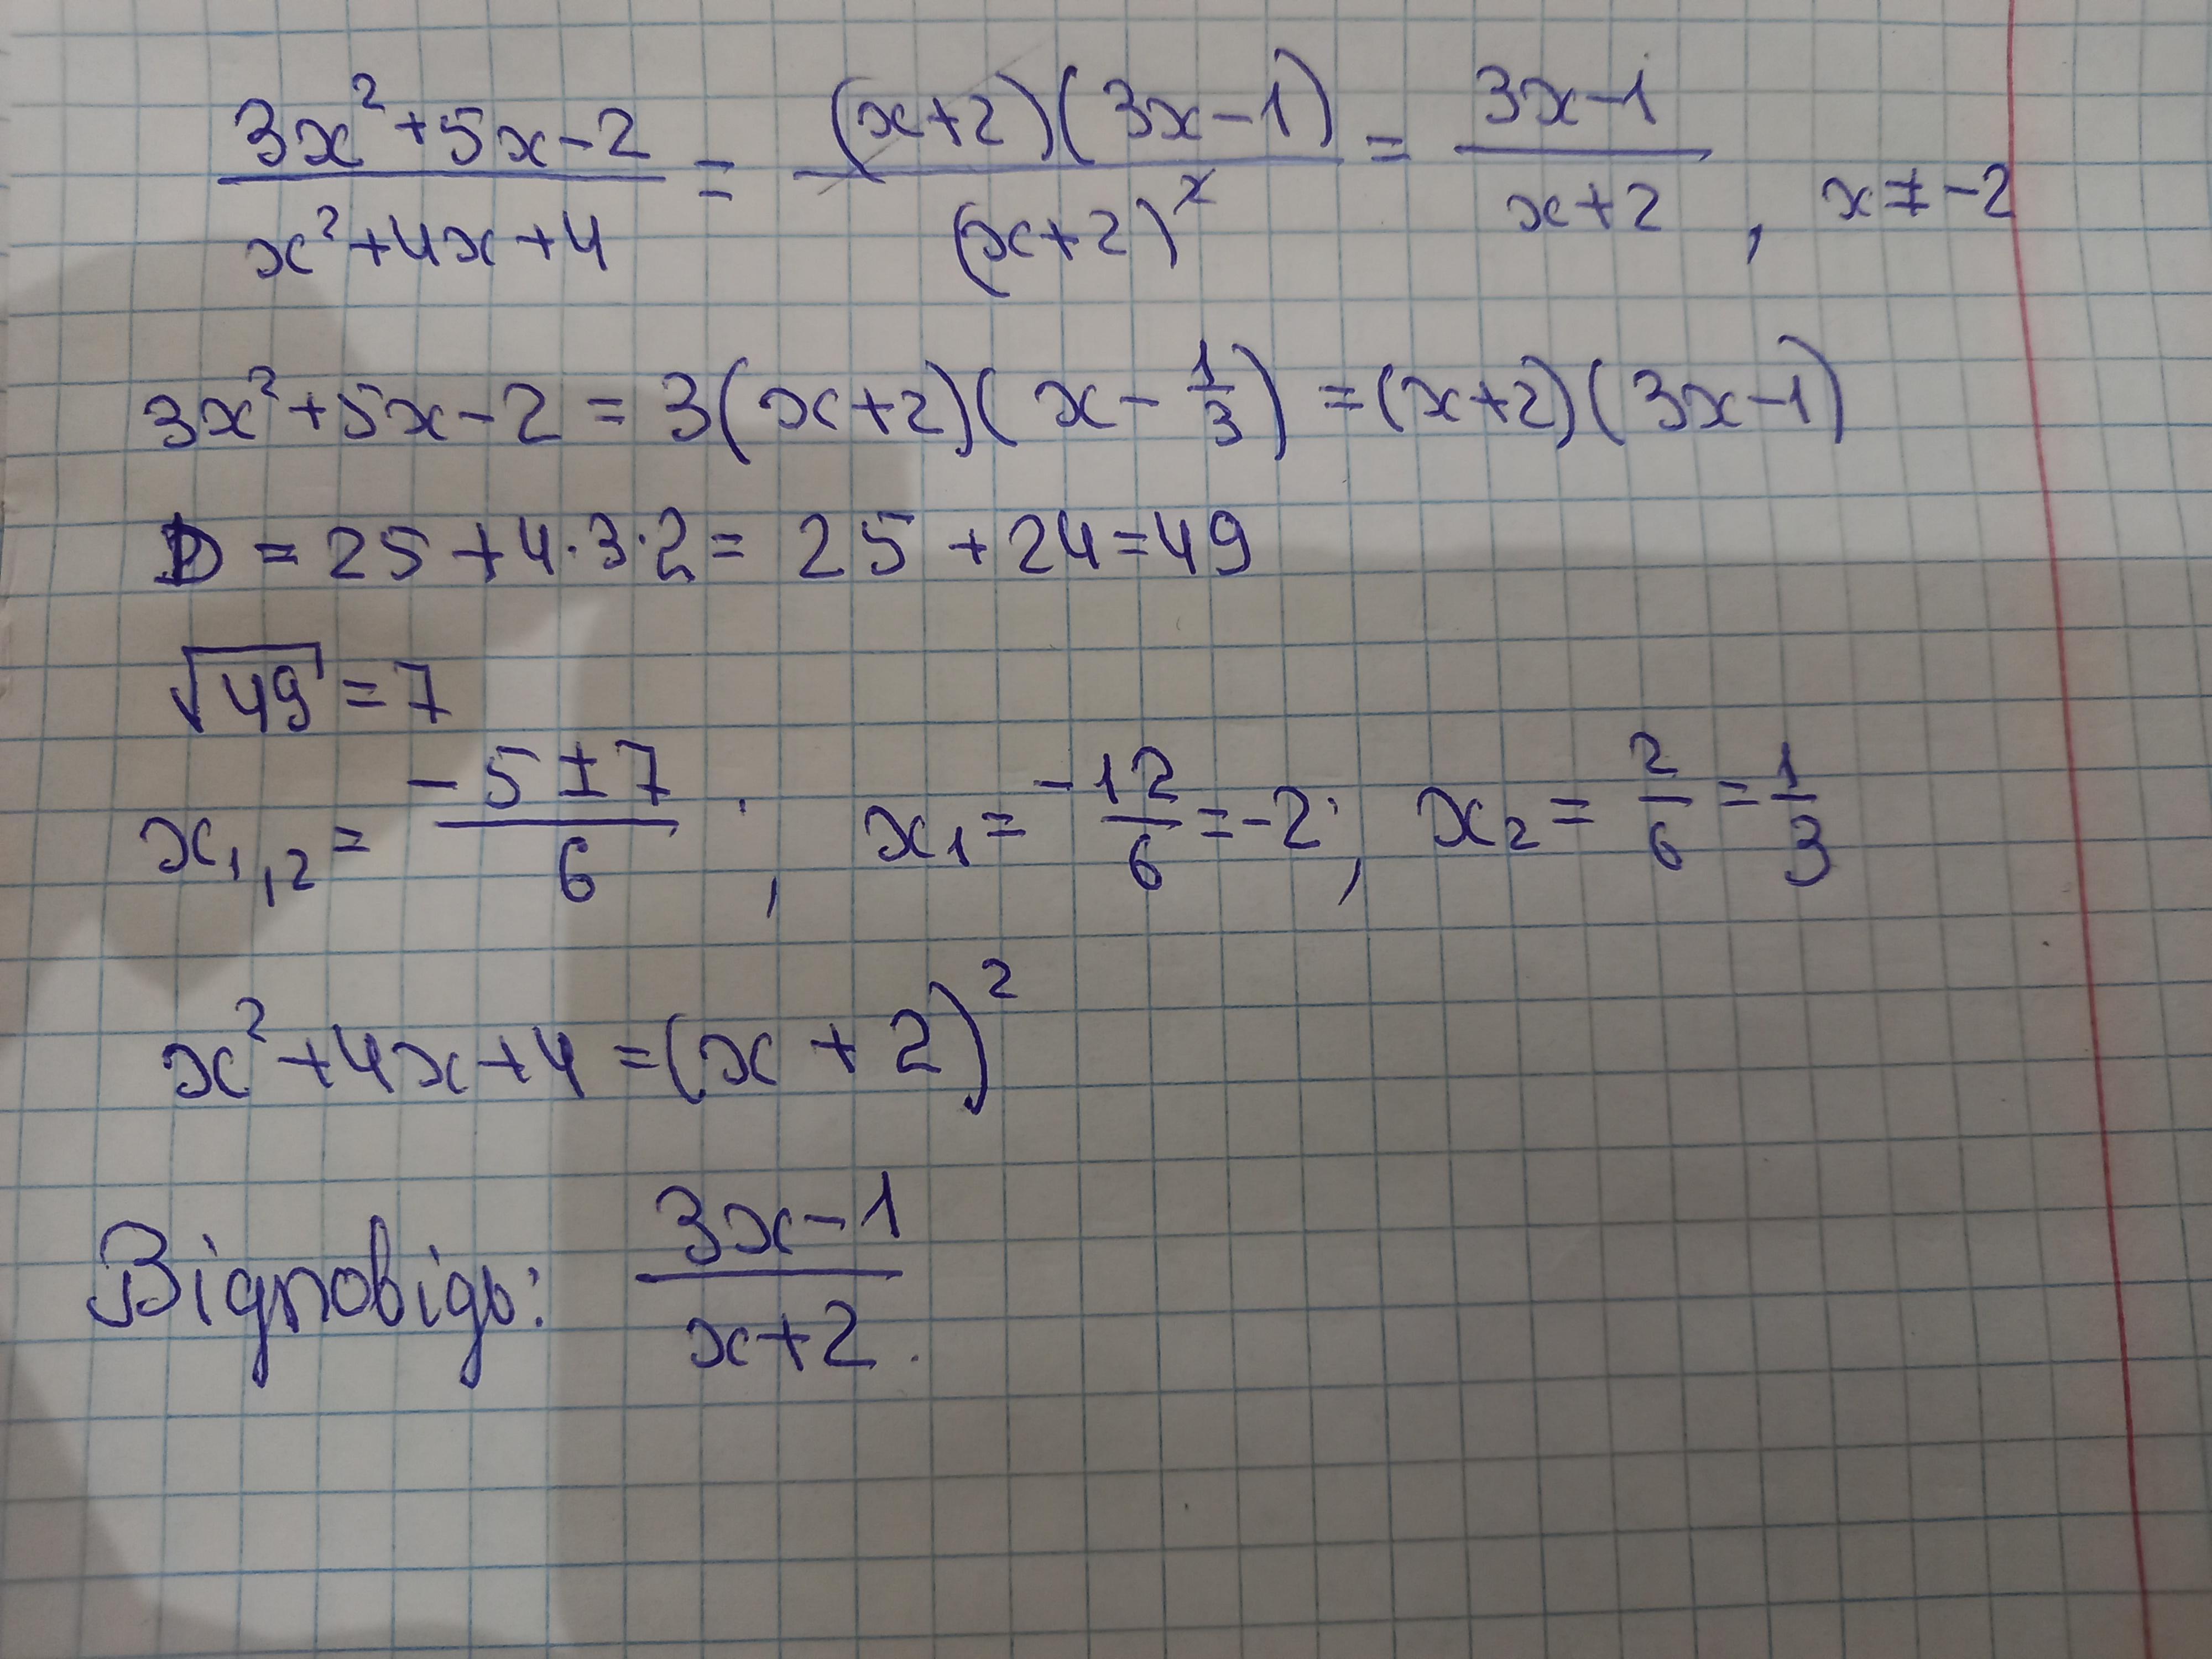 (3x²+5x-2)/(x²+4x+4) = ((x+2)(3x-1))/((x+2)²) = (3x-1)/(x+2), x≠-2
3x²+5x-2=3(x+2)(x-1/3)=(x+2)(3x-1)
D=25+4·3·2=25+24=49
√49=7
x₁,₂=(-5±7)/6; x₁=-12/6=-2; x₂=2/6=1/3
x²+4x+4=(x+2)²
Відповідь: (3x-1)/(x+2).